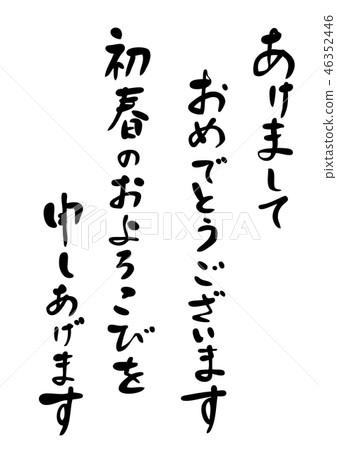 あけまして
おめでとうございます
初春のおよろこびを
申しあげます
PIXTA
pixtastock.com - 46352446